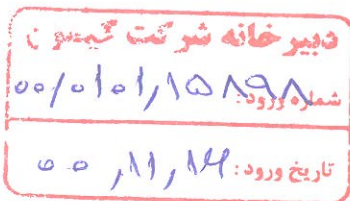 دبیرخانه شرکت
شماره ورود: ۰۰/۰۱۰۱/۱۵۸۹۸
تاریخ ورود: ۰۰/۱۱/۱۴